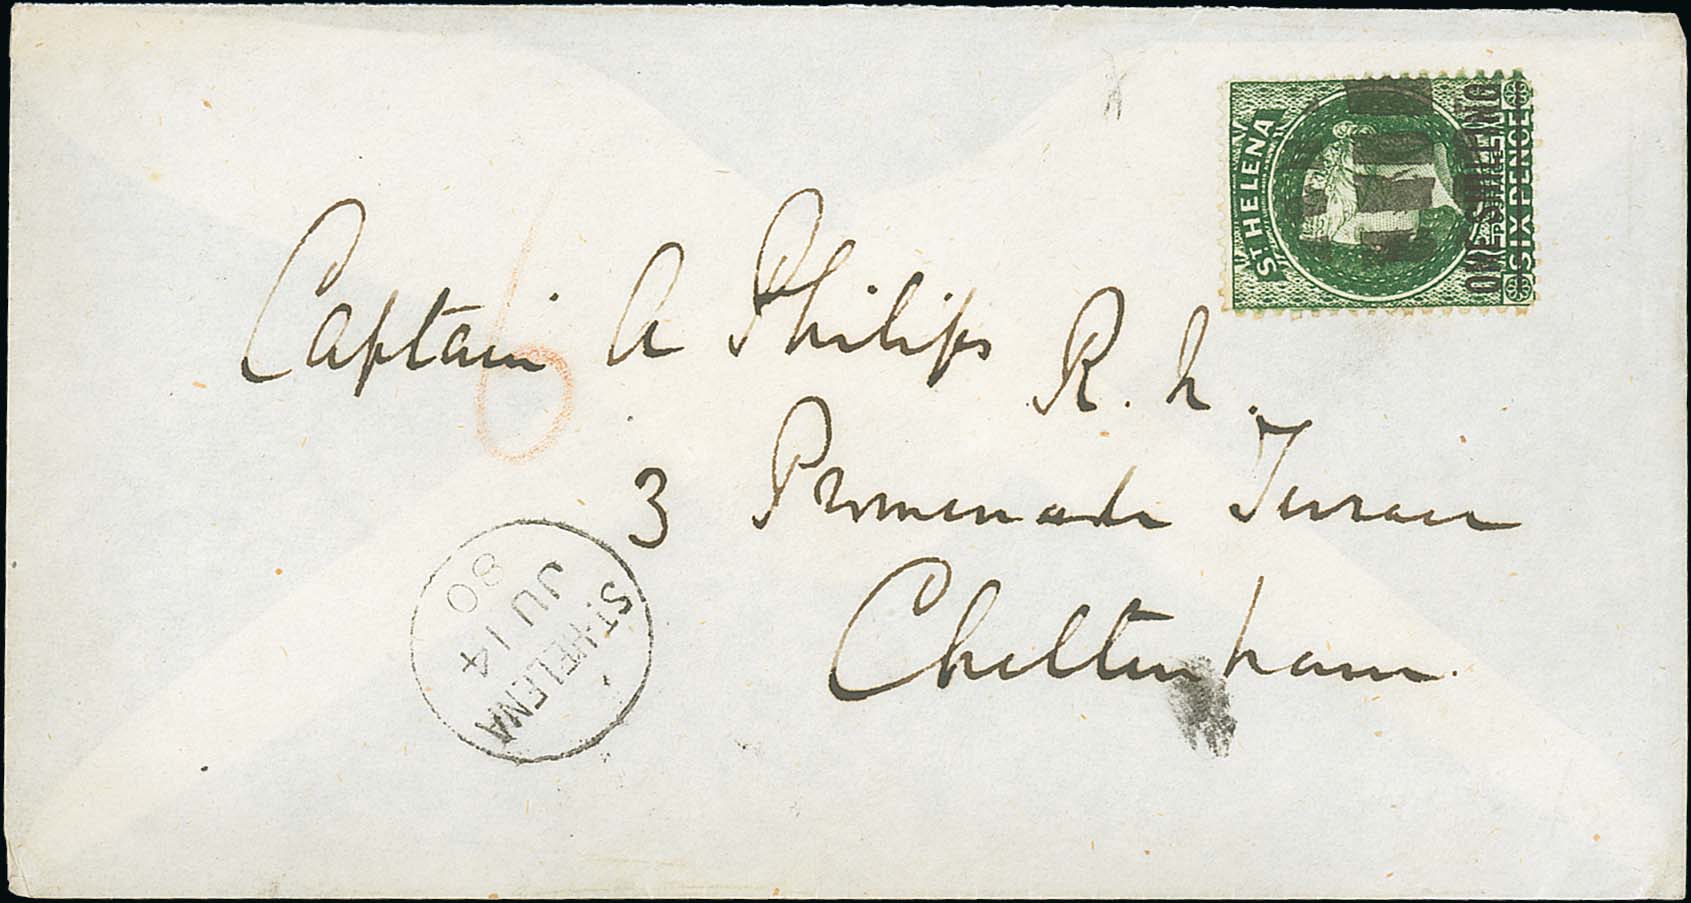 ST HELENA
ONE SHILLING
POSTAGE
SIX PENCE
Captain A Philips R. N.
6
3 Promenade Terrace
Cheltenham.
ST. HELENA
JU 14
80